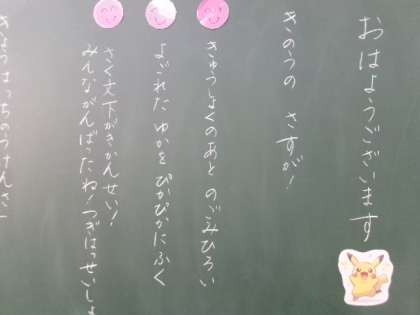 おはようございます
きのうの さすが!
きゅうしょくのあと のごみひろい
よごれた ゆかを ぴかぴかにふく
さく文下がきかんせい!
みんながんばったね!つぎはっせいしょ
きょうはっちのつけんさー